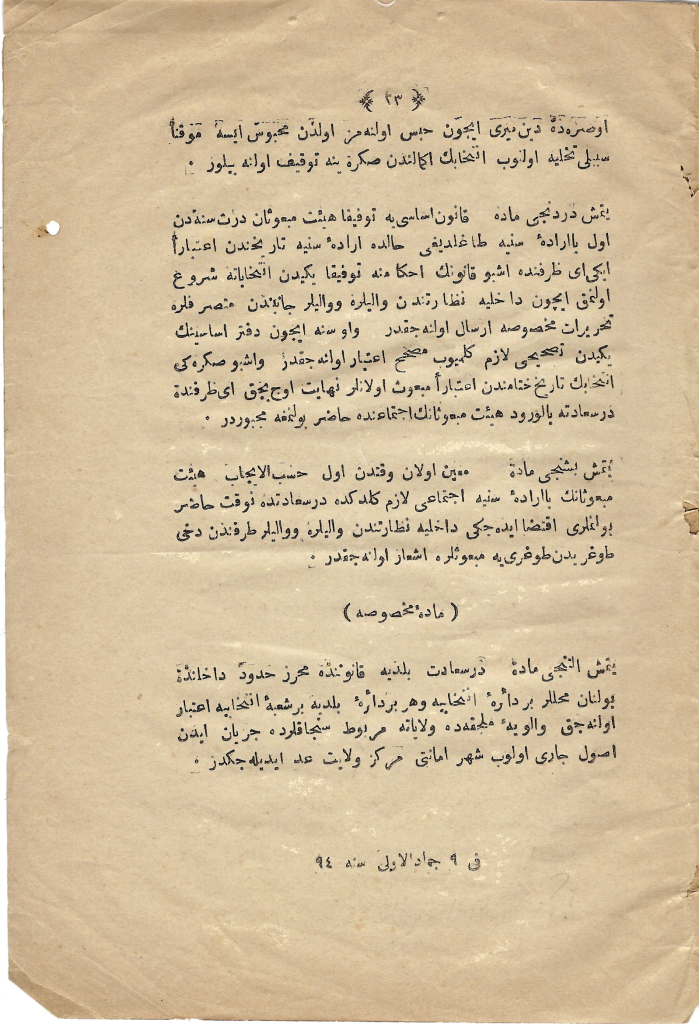 ٢٣
اوصره‌ده دین میری ایچون حبس اولنه‌مز اولدن محبوس ایسه موقتاً
سبیلی تخلیه اولنوب انتخابك اکمالندن صکره ینه توقیف اولنه بیلور ٠
یتمش دردنجی ماده قانون اساسی‌یه توفیقا هیئت مبعوثان درت سنه‌دن
اول باارادهٔ سنیه طاغلدیغی حالده ارادهٔ سنیه تاریخندن اعتباراً
ایکی‌ای ظرفنده اشبو قانونك احکامنه توفیقا یکیدن انتخاباته شروع
اولنمق ایچون داخلیه نظارتندن والیلره ووالیلر جانبندن متصرفلره
تحریرات مخصوصه ارسال اولنه‌جقدر واوسنه ایچون دفتر اساسینك
یکیدن تصحیحی لازم کلمیوب مصحح اعتبار اولنه‌جقدر واشبو صکره‌کی
انتخابك تاریخ ختامندن اعتباراً مبعوث اولانلر نهایت اوچ‌بچق ای‌ظرفنده
درسعادته بالورود هیئت مبعوثانك‌اجتماعنده حاضر بولنمغه مجبوردر ٠
یتمش بشنجی ماده معین اولان وقتدن اول حسب‌الایجاب هیئت
مبعوثانك باارادهٔ سنیه اجتماعی لازم کلدکده درسعادتده نوقت حاضر
بولنملری اقتضا ایده‌جکی داخلیه نظارتندن والیلره ووالیلر طرفندن دخی
طوغریدن‌طوغری‌یه مبعوثلره اشعار اولنه‌جقدر ٠
( مادهٔ مخصوصه )
یتمش التنجی ماده درسعادت بلدیه قانوننده محرر حدود داخلنده
بولنان محللر بر دائرهٔ انتخابیه وهر بردائرهٔ بلدیه برشعبهٔ انتخابیه اعتبار
اولنه‌جق والویهٔ ملحقه‌ده ولایاته مربوط سنجاقلرده جریان ایدن
اصول جاری اولوب شهر امانتی مرکز ولایت عد ایدیله‌جکدر ٠
فی ٩ جمادالاولی سنه ٩٤